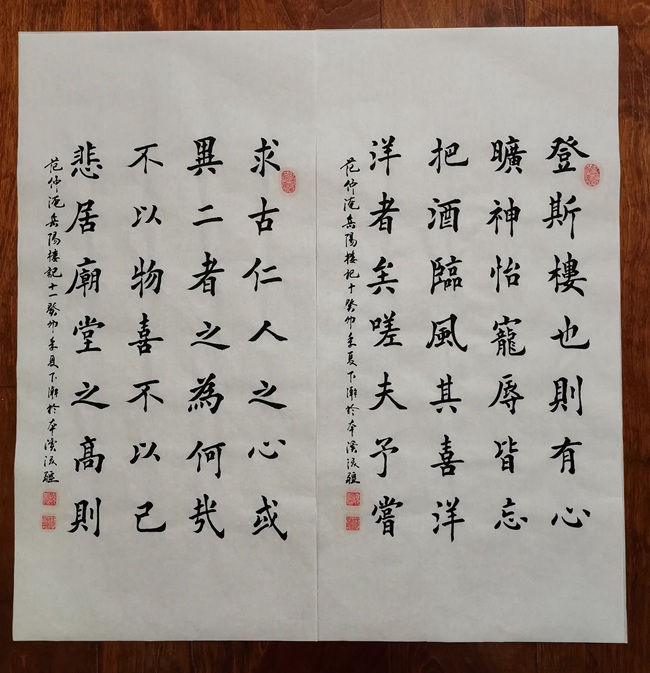 登斯樓也則有心
曠神怡寵辱皆忘
把酒臨風其喜洋
洋者矣嗟夫予嘗
范仲淹岳陽樓記十癸卯季夏下澣於本溪
求古仁人之心或
異二者之為何哉
不以物喜不以己
悲居廟堂之高則
范仲淹岳陽樓記十一癸卯季夏下澣於本溪